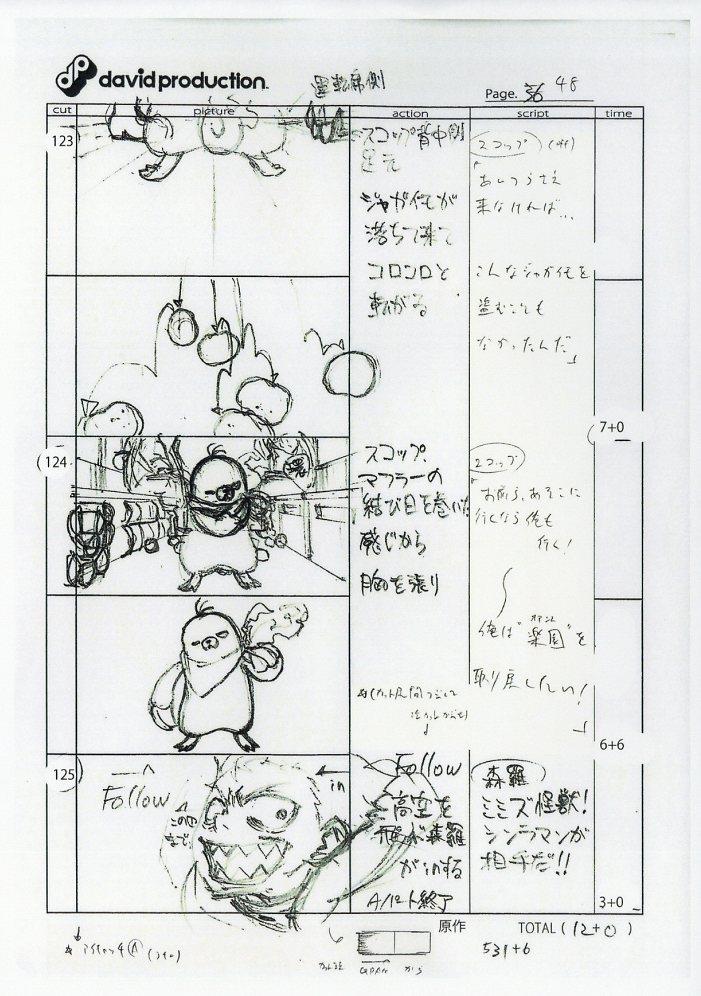 davidproduction.
運転席側
Page. 36 48
cut
picture
action
script
time
123
スコップ背中側
足元
ジャガイモが
落ちて来て
コロンコロと
転がる
スコップ
「あいつらさえ
来なければ…
こんなジャガイモを
盗むことも
なかったんだ」
7+0
124
スコップ、
マフラーの
結び目を巻いた
感じから
胸を張り
スコップ
「お前ら、あそこに
行くなら俺も
行く!
俺は"楽園"を
取り戻したい!
」
6+6
125
Follow
in
Follow
高空を
飛ぶ森羅
がinする
Aパート終了
森羅
ミミズ怪獣!
シンラマンが
相手だ!!
3+0
原作
TOTAL (12+0)
531+6